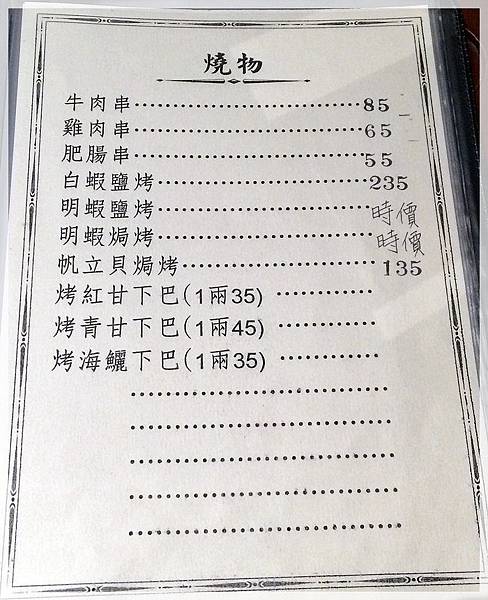 燒物
牛肉串……………………………85
雞肉串……………………………65
肥腸串……………………………55
白蝦鹽烤…………………………235
明蝦鹽烤…………………………時價
明蝦焗烤…………………………時價
帆立貝焗烤………………………135
烤紅甘下巴(1兩35) …………
烤青甘下巴(1兩45) …………
烤海鱺下巴(1兩35) …………